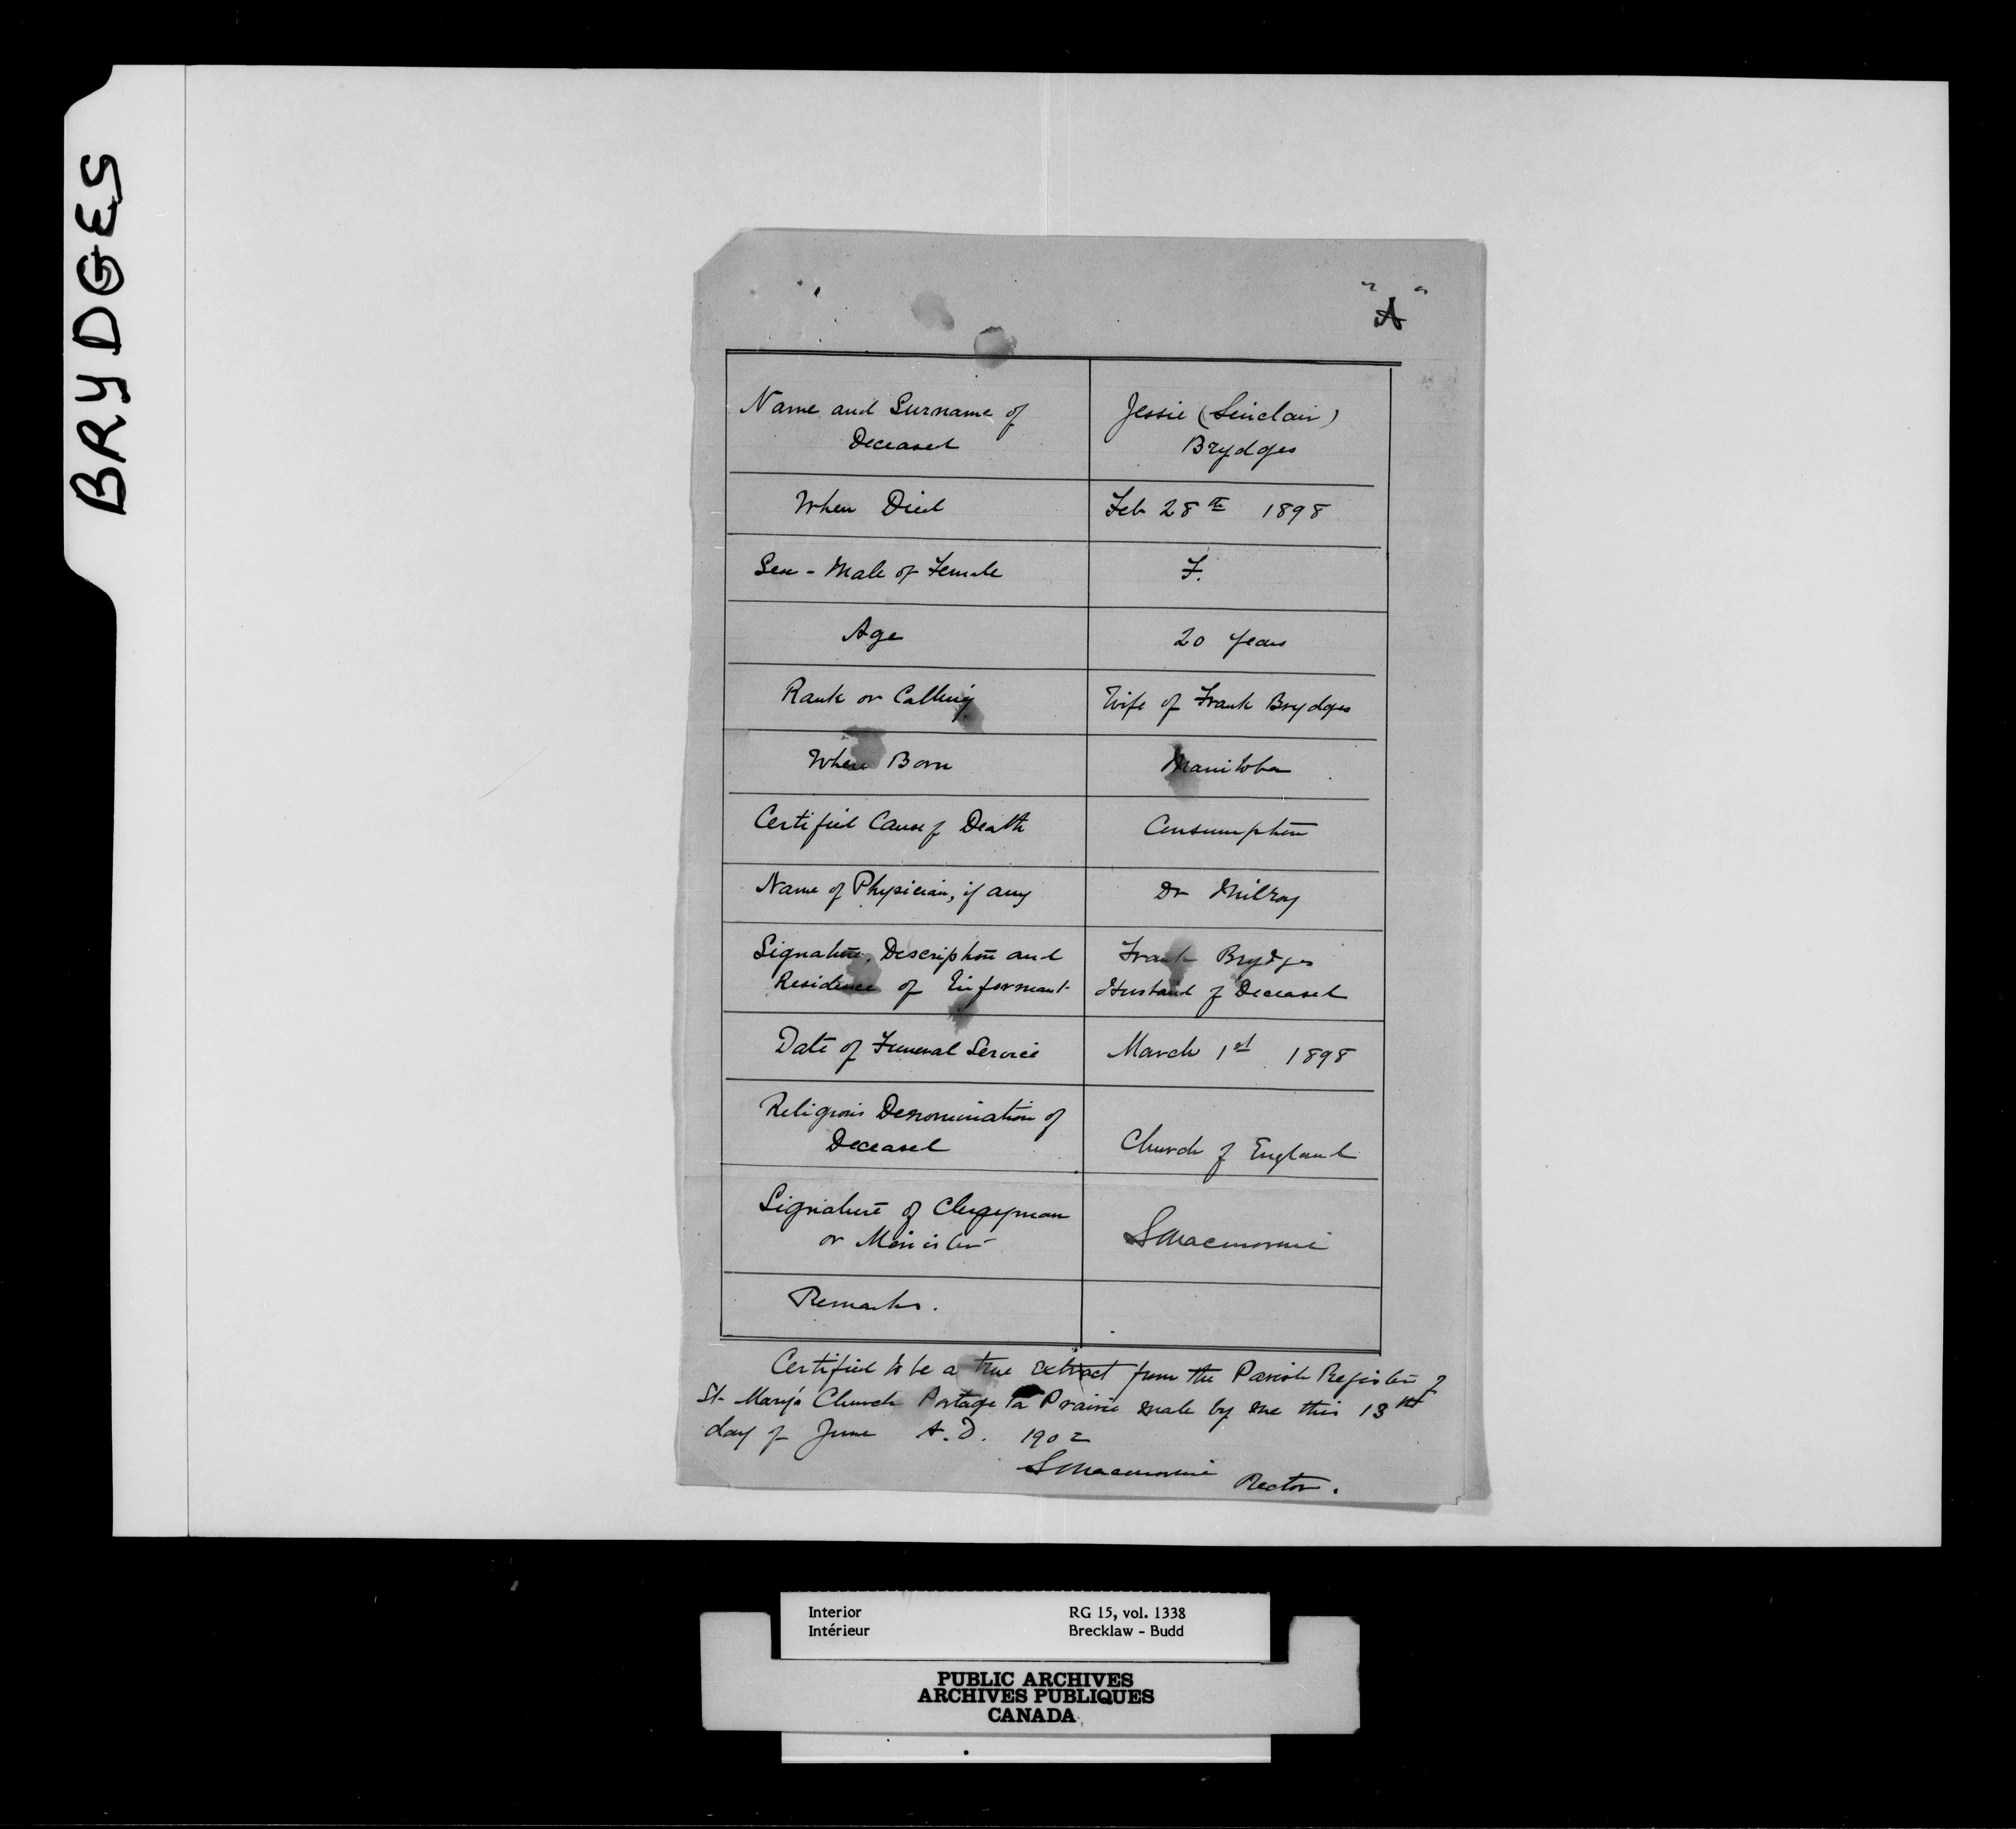 BRYDGES
"A"
Name and Surname of
Deceased
Jessie (Sinclair)
Brydges
When Died
Feb 28th 1898
Sex - Male or Female
F.
Age
20 years
Rank or Calling
Wife of Frank Brydges
Where Born
Manitoba
Certified Cause of Death
Consumption
Name of Physician, if any
Dr Milroy
Signature, Description and
Residence of Informant
Frank Brydges
Husband of Deceased
Date of Funeral Service
March 1st 1898
Religious Denomination of
Deceased
Church of England
Signature of Clergyman
or Minister
S Macmorine
Remarks.
Certified to be a true extract from the Parish Register of
St. Mary's Church Portage la Prairie made by me this 13th
day of June A.D. 1902
S Macmorine Rector.
Interior
Intérieur
RG 15, vol. 1338
Brecklaw - Budd
PUBLIC ARCHIVES
ARCHIVES PUBLIQUES
CANADA